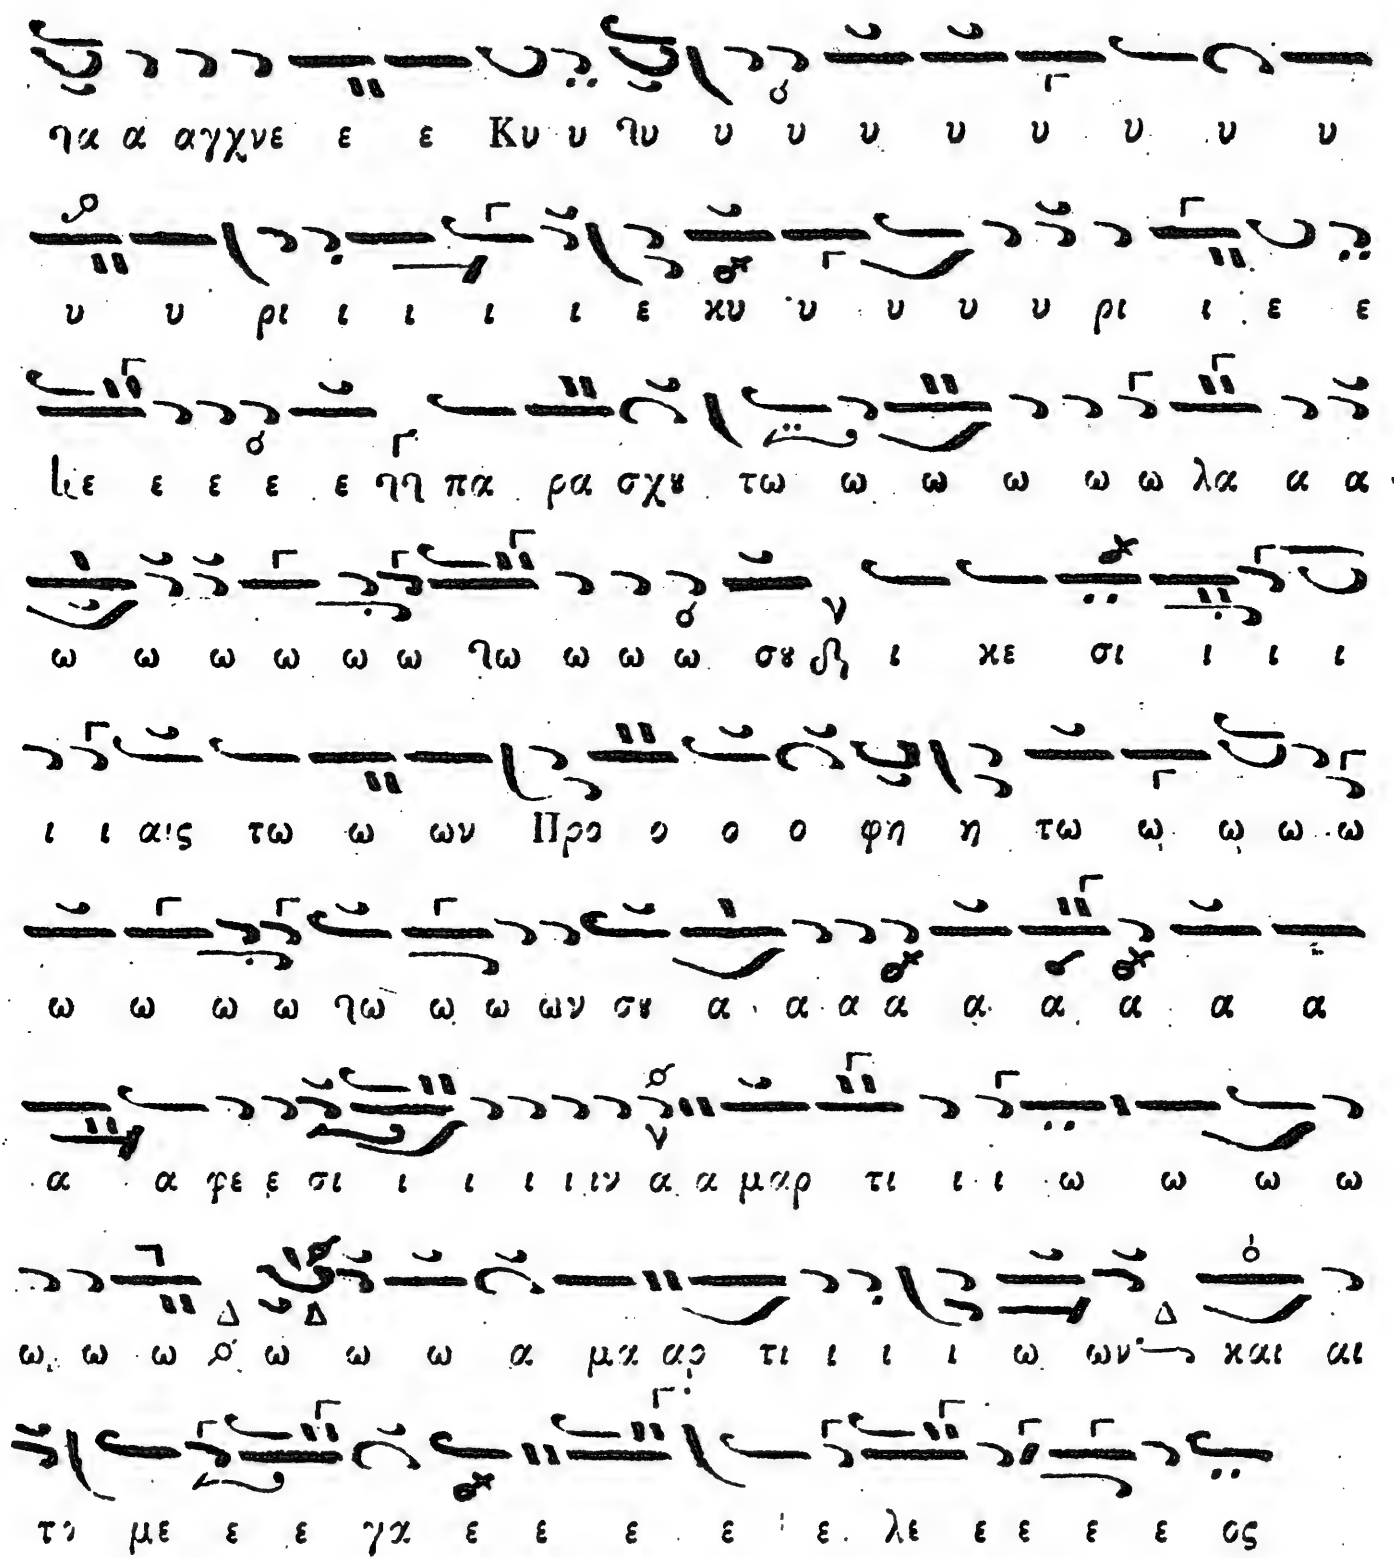 ηα α αγχνε ε ε Κυ υ ηυ υ υ υ υ υ υ υ υ
υ υ ρι ι ι ι ι ε κυ υ υ υ υ ρι ι ε ε
ε ε ε ε πα ρα σχȣ τω ω ω ω ω ω λα α α
ω ω ω ω ω ω ηω ω ω ω σȣ ι κε σι ι ι ι
ι ι αις τω ω ων Προ ο ο ο φη η τω ω ω ω ω
ω ω ω ω ηω ω ω ων σȣ α α α α α α α α α
α α φε ε σι ι ι ι ι ιν α α μαρ τι ι ι ω ω ω ω
ω ω ω ω ω ω α μα αρ τι ι ι ι ω ων και αι
το με ε ε γα ε ε ε ε ε λε ε ε ε ε ος